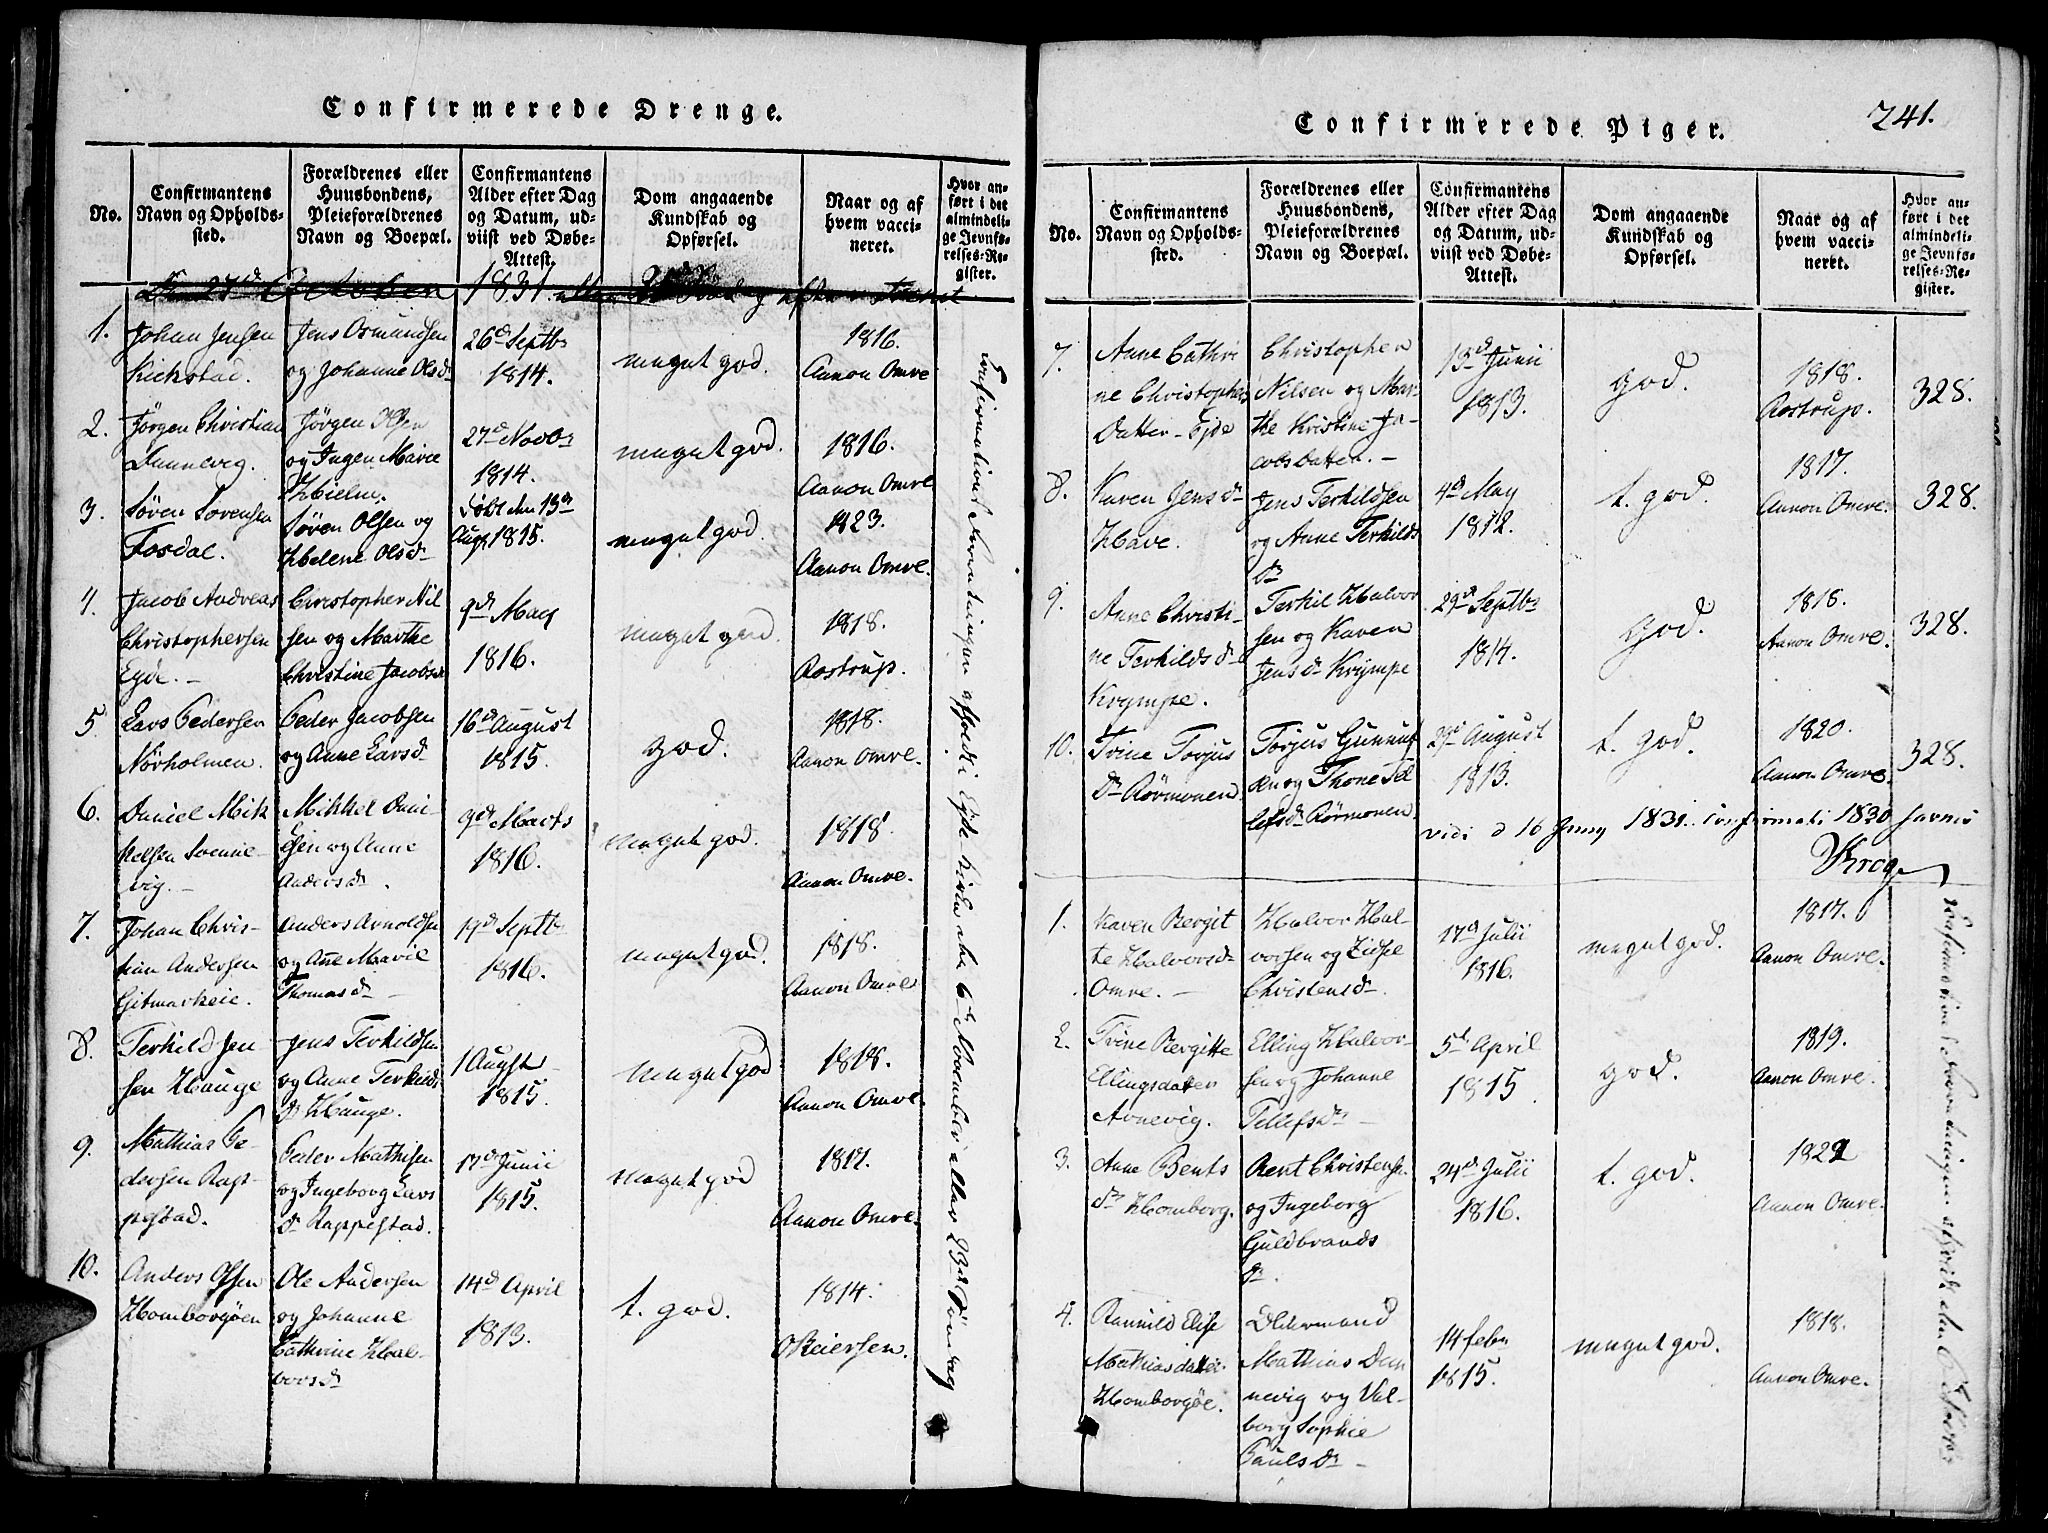 Confirmerede Drenge.
No.
Confirmantens
Navn og Opholds-
sted.
Forældrenes eller
Huusbondens,
Pleieforældrenes
Navn og Boepæl.
Confirmantens
Alder efter Dag
og Datum, ud-
viist ved Døbe-
Attest.
Dom angaaende
Kundskab og
Opførsel.
Naar og af
hvem vacci-
neret.
Hvor an-
ført i det
almindeli-
ge Jevnfø-
relses-Re-
gister.
October 1831.
1.
Johan Jensen
Kickstad.
Jens Osmundsen
og Johanne Olsd
26d Septbr
1814.
meget god.
1816.
Aanon Omre
2.
Jörgen Christian
Dannevig.
Jörgen Olsen
og Ingen Marie
Hielm.
27d Novbr
1814.
meget god.
1816.
Aanon Omre
3.
Sören Sörensen
Fosdal.
Sören Olsen og
Helene Olsd
Döbt den 13de
Aug 1815.
meget god.
1823.
Aanon Omre.
4.
Jacob Andreas
Christophersen
Egde. -
Christopher Nil
sen og Marthe
Christine Jacobsd
9d May
1816.
meget god.
1818.
Aastrup.
5
Lars Pedersen
Nörholmen.
Peder Jacobsen
og Anne Larsd
16d August
1815.
god.
1818.
Aanon Omre.
6.
Daniel Mik
kelsen Svenne-
vig. -
Mikkel Dani
elsen og Anne
Andersd.
9d Marts
1816.
meget god.
1818.
Aanon Omre.
7.
Johan Chris-
tian Andersen
Gitmarkeie.
Anders Arnoldsen
og Ane Marie
Thomasd -
19d Septbr
1816.
meget god.
1818.
Aanon Omre
8.
Terkild Jen-
sen Hauge
Jens Terkildsen
og Anne Terkilds
d Hauge.
1 Augst
1815.
meget god
1818.
Aanon Omre.
9.
Mathias Pe-
dersen Rap-
pestad.
Peder Mathisen
og Ingeborg Lars
d Rappestad.
17d Junii
1815.
meget god
1817.
Aanon Omre.
10.
Anders Olsen
Homborgöen
Ole Andersen
og Johanne
Cathrine Hal-
vorsd
14d April
1813.
t. god.
1814.
O Reiersen.
Confirmations Forretningen afholdt i Egde Kirke den 6te November eller 23de Söndag
Confirmerede Piger.
241.
No.
Confirmantens
Navn og Opholds-
sted.
Forældrenes eller
Huusbondens,
Pleieforældrenes
Navn og Boepæl.
Confirmantens
Alder efter Dag
og Datum, ud-
viist ved Døbe-
Attest.
Dom angaaende
Kundskab og
Opførsel.
Naar og af
hvem vacci-
neret.
Hvor an-
ført i det
almindeli-
ge Jevnfø-
relses-Re-
gister.
7.
Anne Cathri
ne Christophers
Datter - Ejde
Christopher
Nilsen og Mar-
the Kristine Ja-
cobsdatter. -
13d Junii
1813.
god.
1818.
Aastrup.
328.
8.
Karen Jensd
Have.
Jens Terkildsen
og Anne Terkilds
dr
4d May
1812.
t. god.
1817.
Aanon Omre.
328.
9.
Anne Christi-
ne Terkildsd
Krympe.
Terkil Halvor
sen og Karen
Jensd Krympe
29d Septbr
1814.
god.
1818.
Aanon Omre.
328.
10.
Trine Torjus
Dr Rörmonen.
Torjus Gunnuf
sen og Thone Tel
lefsd Rörmonen.
29d August
1813.
t. god.
1820.
Aanon Omre
328.
vidi d 16 Juny 1831. confirmati 1830
Krog
1.
Karen Bergit
te Halvorsd
Omre. -
Halvor Hal-
vorsen og Zidsel
Christensd.
17d Julii
1816.
meget god.
1817.
Aanon Omre.
2.
Trine Bergitte
Ellingsdatter
Avnevig.
Elling Halvor-
sen og Johanne
Tellefsd -
5d April
1815
god.
1819.
Aanon Omre.
3.
Anne Bents
dr Homborg.
Bent Christensen
og Ingeborg
Guldbrands
dr.
24d Julii
1816.
t. god.
1822
Aanon Omre.
4.
Rannild Elise
Mathiasdatter
Homborgöe.
Oldermand
Mathias Dan
nevig og Val-
borg Sophie
Paulsd -
14 febr
1815.
meget god.
1818.
Aanon Omre.